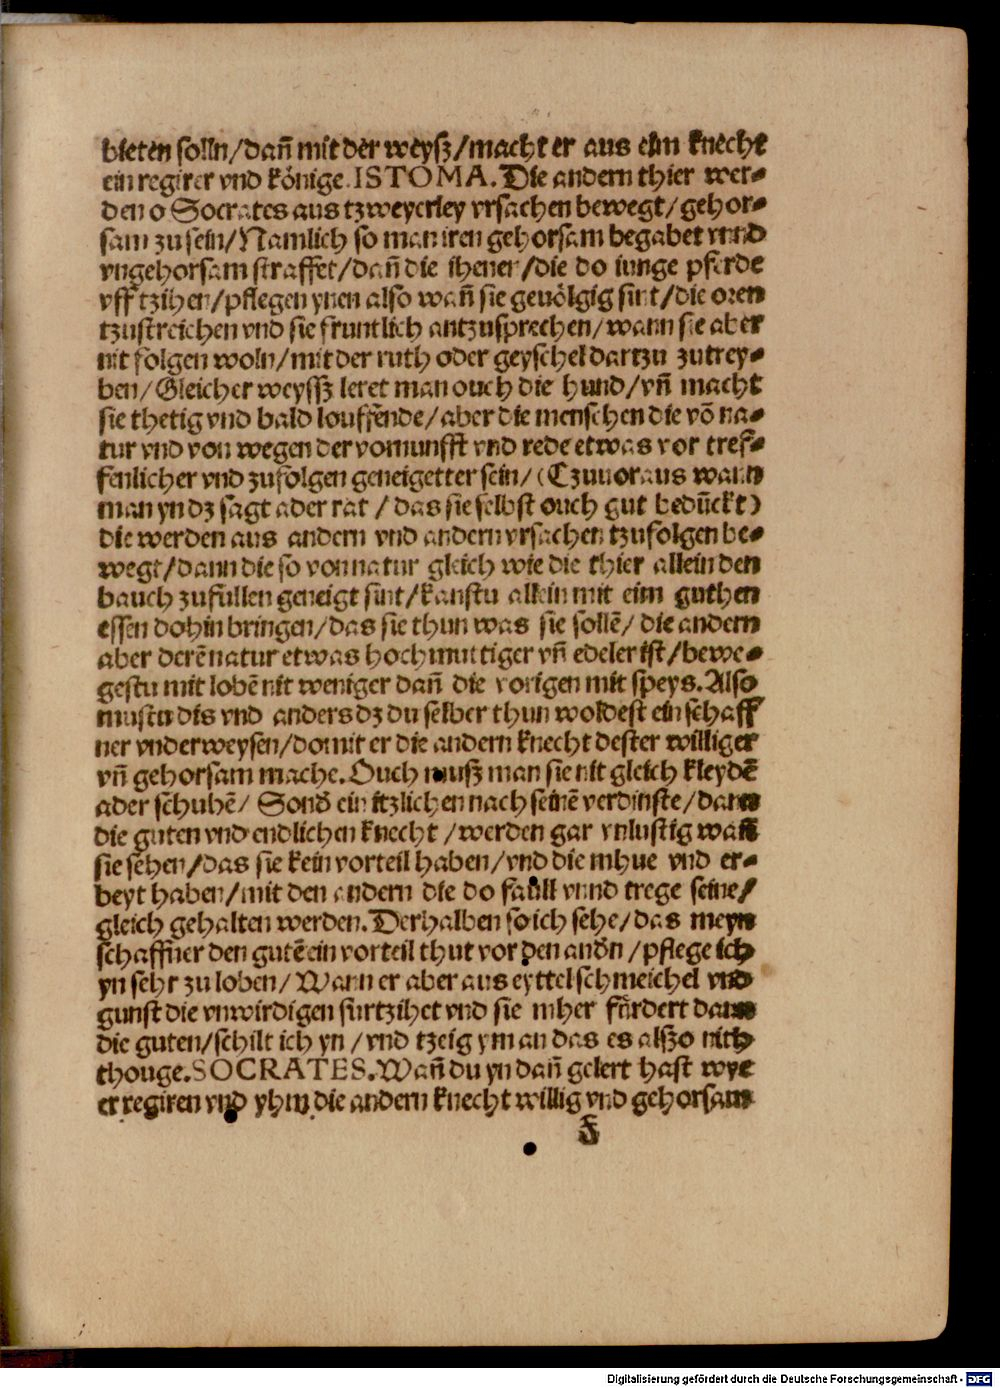 bieten solln/dañ mit der weysz/macht er aus eim knecht
ein regirer vnd könige.ISTOMA.Die andern thier wer⸗
den o Socrates aus tzweyerley vrsachen bewegt/gehor⸗
sam zu sein/Namlich so man iren gehorsam begabet vnnd
vngehorsam straffet/dañ die ihener/die do iunge pferde
vff tzihen/pflegen ynen also wañ sie geuölgig sint/die oren
tzustreichen vnd sie fruntlich antzusprechen/wann sie aber
nit folgen woln/mit der ruth oder geyschel dartzu zutrey⸗
ben/Gleicher weyssz leret man ouch die hund/vñ macht
sie thetig vnd bald louffende/aber die menschen die võ na⸗
tur vnd von wegen der vornunfft vnd rede etwas vor tref⸗
fenlicher vnd zufolgen geneigetter sein/(Czuuoraus wann
man yn dz sagt ader rat/das sie selbst ouch gut bedűckt)
die werden aus andern vnd andern vrsachen tzufolgen be⸗
wegt/dann die so von natur gleich wie die thier allein den
bauch zufullen geneigt sint/kanstu allein mit eim guthen
essen dohin bringen/das sie thun was sie sollẽ/die andern
aber derẽ natur etwas hochmuttiger vñ edeler ist/bewe⸗
gestu mit lobẽ nit weniger dañ die vorigen mit speys.Also
mustu dis vnd anders dz du selber thun woldest ein schaff
ner vnderweysen/domit er die andern knecht dester williger
vñ gehorsam mache.Ouch musz man sie nit gleich kleydẽ
ader schuhẽ/Sonđ ein itzlichen nach seinẽ verdinste/dann
die guten vnd endlichen knecht/werden gar vnlustig wañ
sie sehen/das sie kein vorteil haben/vnd die mhue vnd er⸗
beyt haben/mit den andern die do faůll vnnd trege seine/
gleich gehalten werden.Derhalben so ich sehe/das meyn
schaffner den gutẽ ein vorteil thut vor den anđn/pflege ich
yn sehr zu loben/Wann er aber aus eyttel schmeichel vnd
gunst die vnwirdigen furtzihet vnd sie mher fårdert dann
die guten/schilt ich yn/vnd tzeig ym an das es alszo nith
thouge.SOCRATES.Wañ du yn dañ gelert hast wye
er regiren vnd yhm die andern knecht willig vnd gehorsam
Digitalisierung gefördert durch die Deutsche Forschungsgemeinschaft - DFG